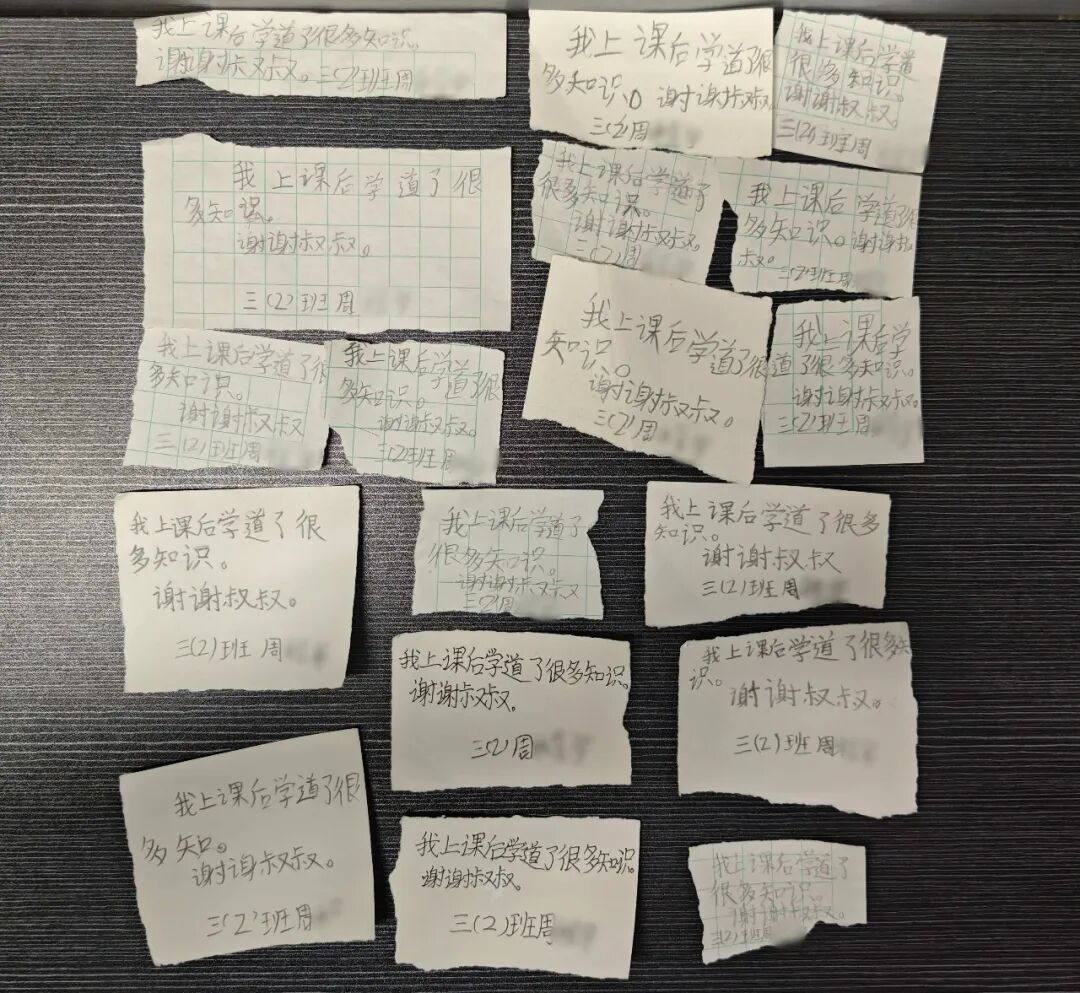 我上课后学道了很多知识。
谢谢叔叔。三(2)班周
我上课后学道了很
多知识。谢谢叔叔
三(2)周
我上课后学道
很多知识。
谢谢叔叔
三(2)班周
我上课后学道了很
多知识。
谢谢叔叔。
三(2)班周
我上课后学道了
很多知识。
谢谢叔叔。
三(2)周
我上课后学道了很
多知识。谢谢叔
叔。
三(2)班周
我上课后学道了很
多知识。
谢谢叔叔
三(2)班周
我上课后学道了很
多知识。
谢谢叔叔。
三(2)班周
我上课后学道了很
知识。
谢谢叔叔。
三(2)周
我上课后学
道了很多知识。
谢谢叔叔。
三(2)班周
我上课后学道了很
多知识。
谢谢叔叔。
三(2)班周
我上课后学道了
很多知识。
谢谢叔叔
三(2)周
我上课后学道了很多
知识。
谢谢叔叔
三(2)班周
我上课后学道了很多知识。
谢谢叔叔。
三(2)周
我上课后学道了很多知
识。
谢谢叔叔。
三(2)班周
我上课后学道了很
多知。
谢谢叔叔。
三(2)班周
我上课后学道了很多知识。
谢谢叔叔。
三(2)班周
我上课后学道了
很多知识。
谢谢叔叔。
三(2)班周